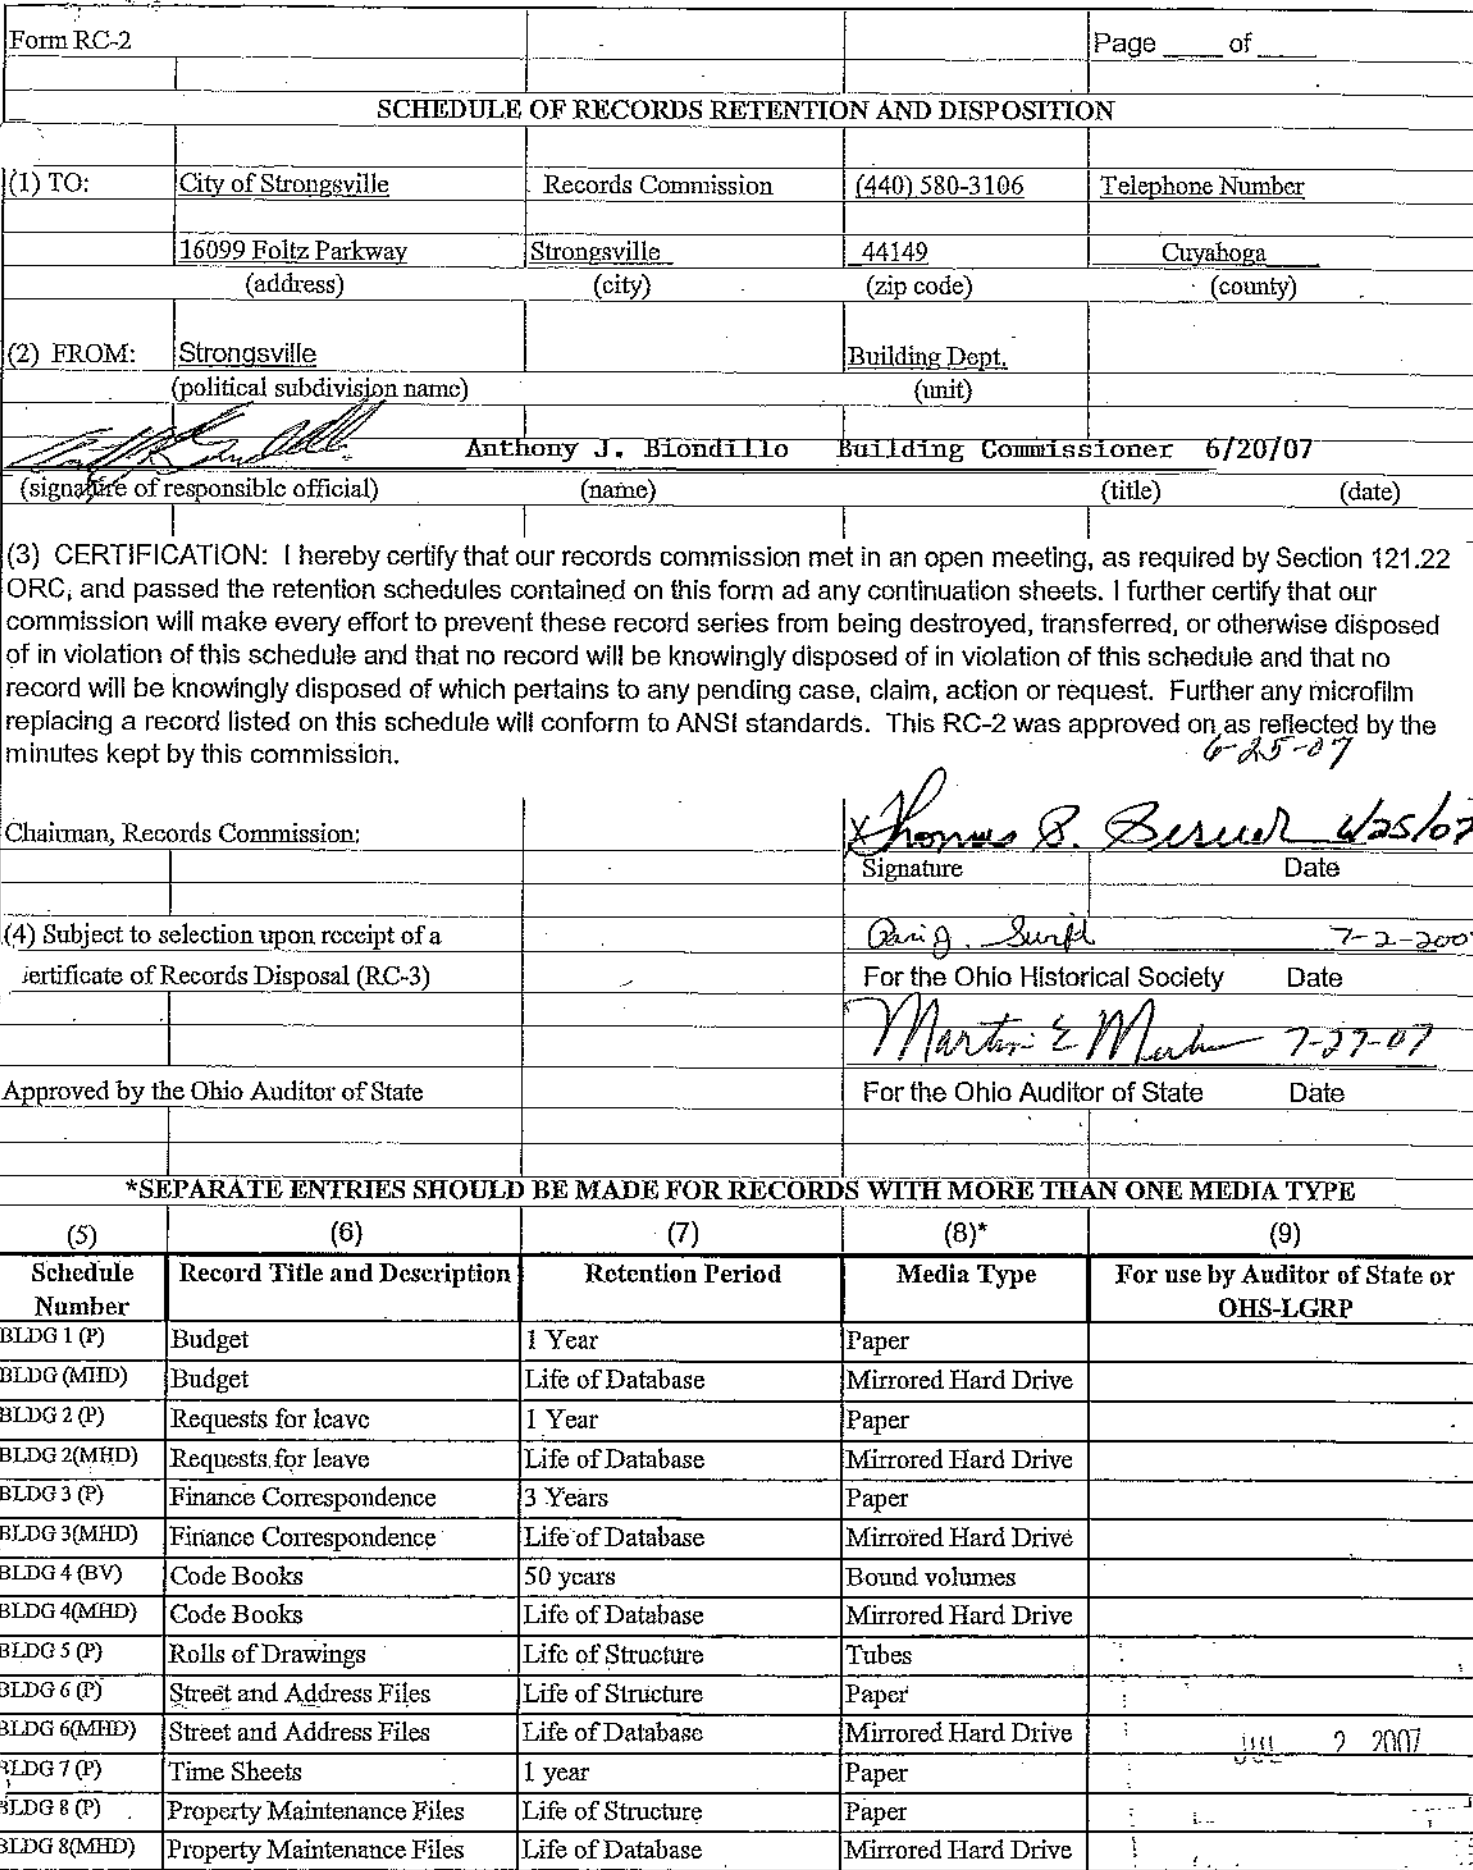 Form RC-2 Page ____ of ____
SCHEDULE OF RECORDS RETENTION AND DISPOSITION
(1) TO: City of Strongsville Records Commission (440) 580-3106 Telephone Number
16099 Foltz Parkway Strongsville 44149 Cuyahoga
(address) (city) (zip code) (county)
(2) FROM: Strongsville Building Dept.
(political subdivision name) (unit)
Anthony J. Biondillo Building Commissioner 6/20/07
(signature of responsible official) (name) (title) (date)
(3) CERTIFICATION: I hereby certify that our records commission met in an open meeting, as required by Section 121.22
ORC, and passed the retention schedules contained on this form ad any continuation sheets. I further certify that our
commission will make every effort to prevent these record series from being destroyed, transferred, or otherwise disposed
of in violation of this schedule and that no record will be knowingly disposed of in violation of this schedule and that no
record will be knowingly disposed of which pertains to any pending case, claim, action or request. Further any microfilm
replacing a record listed on this schedule will conform to ANSI standards. This RC-2 was approved on as reflected by the
minutes kept by this commission. 6-25-07
Chairman, Records Commission: X Thomas 6/25/07
Signature Date
(4) Subject to selection upon receipt of a 7-2-200
ertificate of Records Disposal (RC-3) For the Ohio Historical Society Date
Martin E 7-27-07
Approved by the Ohio Auditor of State For the Ohio Auditor of State Date
*SEPARATE ENTRIES SHOULD BE MADE FOR RECORDS WITH MORE THAN ONE MEDIA TYPE
(5) (6) (7) (8)* (9)
Schedule Record Title and Description Retention Period Media Type For use by Auditor of State or
Number OHS-LGRP
BLDG 1 (P) Budget 1 Year Paper
BLDG (MHD) Budget Life of Database Mirrored Hard Drive
BLDG 2 (P) Requests for leave 1 Year Paper
BLDG 2(MHD) Requests for leave Life of Database Mirrored Hard Drive
BLDG 3 (P) Finance Correspondence 3 Years Paper
BLDG 3(MHD) Finance Correspondence Life of Database Mirrored Hard Drive
BLDG 4 (BV) Code Books 50 years Bound volumes
BLDG 4(MHD) Code Books Life of Database Mirrored Hard Drive
BLDG 5 (P) Rolls of Drawings Life of Structure Tubes
BLDG 6 (P) Street and Address Files Life of Structure Paper
BLDG 6(MHD) Street and Address Files Life of Database Mirrored Hard Drive JUL 2 2007
BLDG 7 (P) Time Sheets 1 year Paper
BLDG 8 (P) Property Maintenance Files Life of Structure Paper
BLDG 8(MHD) Property Maintenance Files Life of Database Mirrored Hard Drive